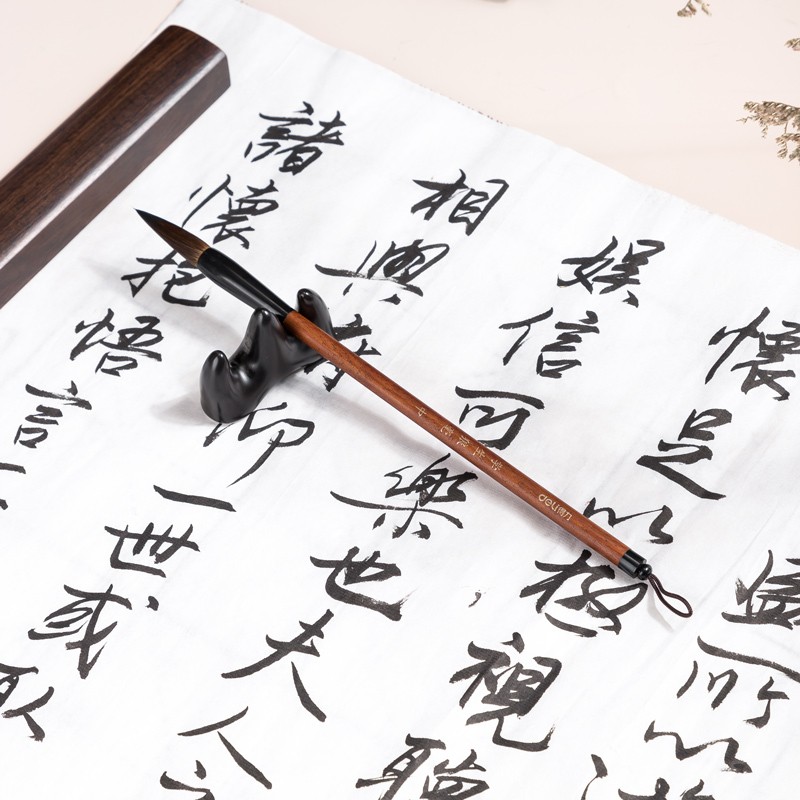 盛所以
懷足以極視聽
娛信可樂也夫人之
相與俯仰一世或取
諸懷抱悟言一
deli得力